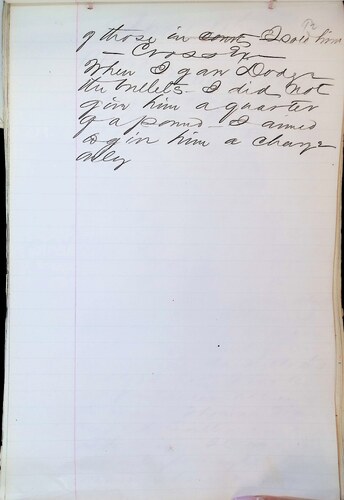 of those in court I sold him
— Cross Ex —
When I gave Dodge
the bullets I did not
give him a quarter
of a pound — I aimed
to give him a charge
only